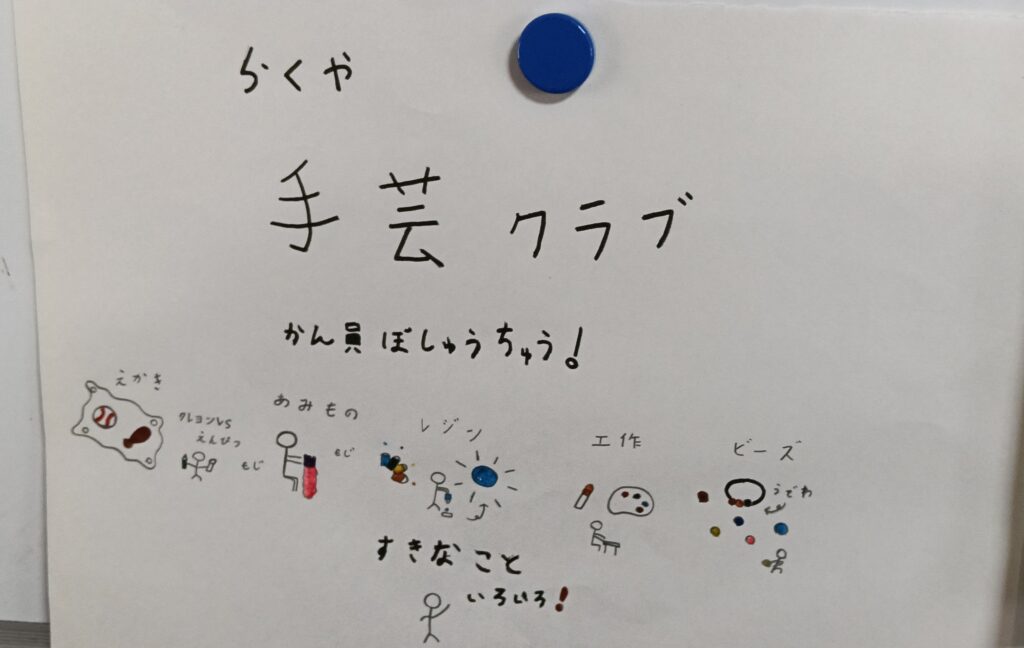 らくや
手芸クラブ
かん員ぼしゅうちゅう!
えかき
クレヨンVS
えんぴつ
もじ
あみもの
もじ
レジン
工作
ビーズ
うでわ
すきなこと
いろいろ!